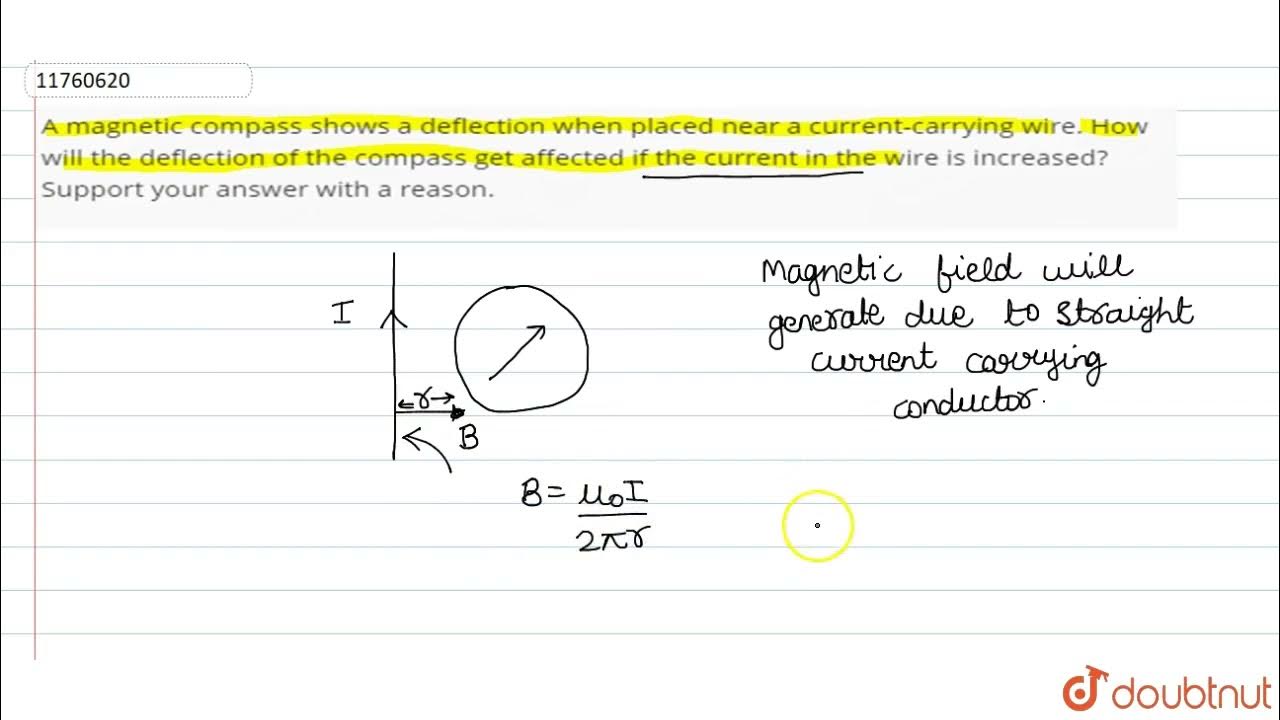 11760620
A magnetic compass shows a deflection when placed near a current-carrying wire. How
will the deflection of the compass get affected if the current in the wire is increased?
Support your answer with a reason.
I
r
B
B = μ₀I
2πr
Magnetic field will
generate due to straight
current carrying
conductor.
doubtnut